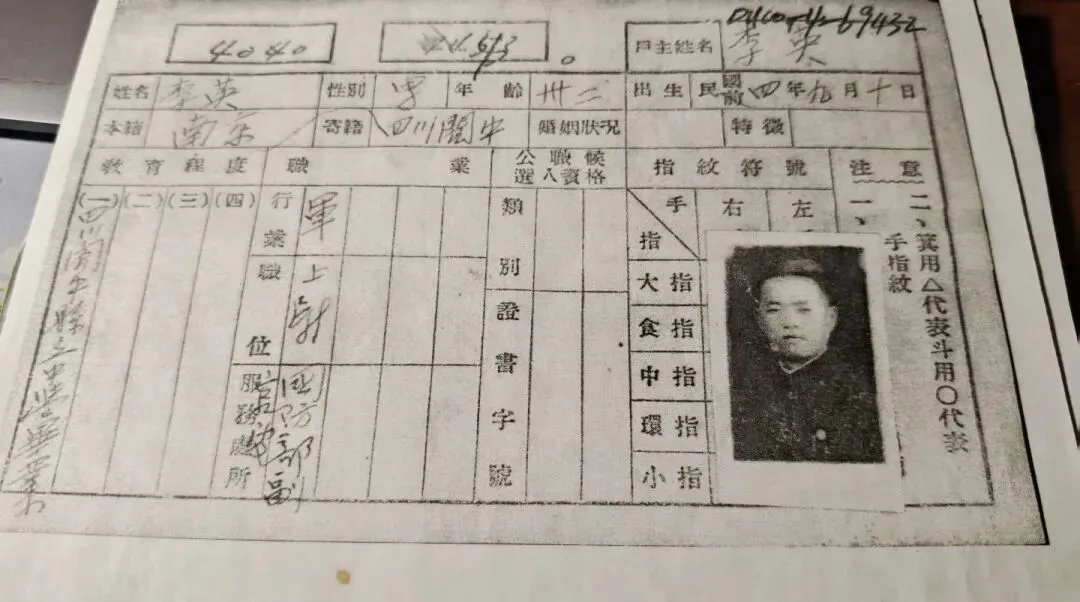 0440-4-69432
4040
戶主姓名 李英
姓名 李英 性別 男 年齡 卅二 出生 民國前 四年九月十日
本籍 南京 寄籍 四川閬中 婚姻狀況 特徵
教育程度 職業 公職候選人資格 指紋符號 注意
(一) (二) (三) (四)
四川閬中縣立中學畢業
行業 軍
職位 上尉
服務處所 國防部副官處
類別
證書字號
手指 右 左
大指
食指
中指
環指
小指
一、
二、箕用△代表斗用○代表
手指紋